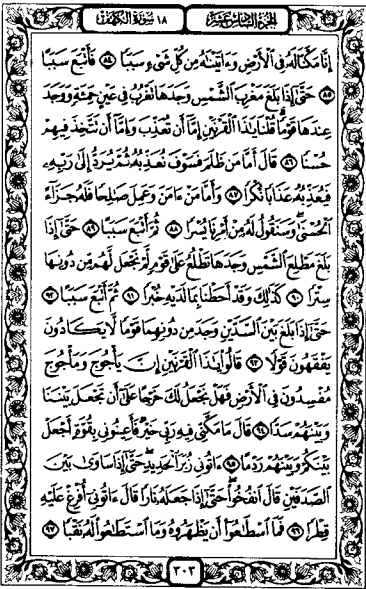 الجزء السادس عشر ١٨ سورة الكهف
إِنَّا مَكَّنَّا لَهُۥ فِى ٱلْأَرْضِ وَءَاتَيْنَٰهُ مِن كُلِّ شَىْءٍ سَبَبًا ٨٤ فَأَتْبَعَ سَبَبًا
٨٥ حَتَّىٰٓ إِذَا بَلَغَ مَغْرِبَ ٱلشَّمْسِ وَجَدَهَا تَغْرُبُ فِى عَيْنٍ حَمِئَةٍ وَوَجَدَ
عِندَهَا قَوْمًا قُلْنَا يَٰذَا ٱلْقَرْنَيْنِ إِمَّآ أَن تُعَذِّبَ وَإِمَّآ أَن تَتَّخِذَ فِيهِمْ
حُسْنًا ٨٦ قَالَ أَمَّا مَن ظَلَمَ فَسَوْفَ نُعَذِّبُهُۥ ثُمَّ يُرَدُّ إِلَىٰ رَبِّهِۦ
فَيُعَذِّبُهُۥ عَذَابًا نُّكْرًا ٨٧ وَأَمَّا مَنْ ءَامَنَ وَعَمِلَ صَٰلِحًا فَلَهُۥ جَزَآءً
ٱلْحُسْنَىٰ وَسَنَقُولُ لَهُۥ مِنْ أَمْرِنَا يُسْرًا ٨٨ ثُمَّ أَتْبَعَ سَبَبًا ٨٩ حَتَّىٰٓ إِذَا
بَلَغَ مَطْلِعَ ٱلشَّمْسِ وَجَدَهَا تَطْلُعُ عَلَىٰ قَوْمٍ لَّمْ نَجْعَل لَّهُم مِّن دُونِهَا
سِتْرًا ٩٠ كَذَٰلِكَ وَقَدْ أَحَطْنَا بِمَا لَدَيْهِ خُبْرًا ٩١ ثُمَّ أَتْبَعَ سَبَبًا ٩٢
حَتَّىٰٓ إِذَا بَلَغَ بَيْنَ ٱلسَّدَّيْنِ وَجَدَ مِن دُونِهِمَا قَوْمًا لَّا يَكَادُونَ
يَفْقَهُونَ قَوْلًا ٩٣ قَالُوا۟ يَٰذَا ٱلْقَرْنَيْنِ إِنَّ يَأْجُوجَ وَمَأْجُوجَ
مُفْسِدُونَ فِى ٱلْأَرْضِ فَهَلْ نَجْعَلُ لَكَ خَرْجًا عَلَىٰٓ أَن تَجْعَلَ بَيْنَنَا
وَبَيْنَهُمْ سَدًّا ٩٤ قَالَ مَا مَكَّنِّى فِيهِ رَبِّى خَيْرٌ فَأَعِينُونِى بِقُوَّةٍ أَجْعَلْ
بَيْنَكُمْ وَبَيْنَهُمْ رَدْمًا ٩٥ ءَاتُونِى زُبَرَ ٱلْحَدِيدِ حَتَّىٰٓ إِذَا سَاوَىٰ بَيْنَ
ٱلصَّدَفَيْنِ قَالَ ٱنفُخُوا۟ حَتَّىٰٓ إِذَا جَعَلَهُۥ نَارًا قَالَ ءَاتُونِىٓ أُفْرِغْ عَلَيْهِ
قِطْرًا ٩٦ فَمَا ٱسْطَٰعُوٓا۟ أَن يَظْهَرُوهُ وَمَا ٱسْتَطَٰعُوا۟ لَهُۥ نَقْبًا ٩٧
٣٠٣